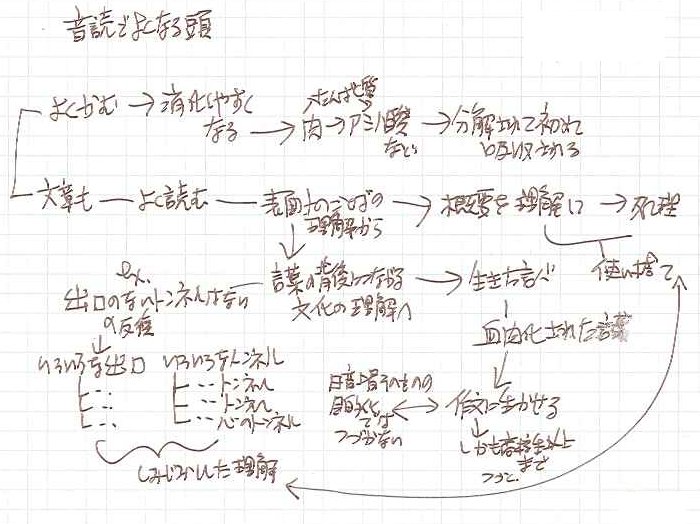 音読でよくなる頭
よくかむ → 消化しやすく
なる → 肉 → アミノ酸
など
たんぱく質
→ 分解されて初めて
吸収される
文章も — よく読む — 表面上のことばの
理解から
→ 概要を理解し → 処理
使い捨て
ex.
出口のないトンネルはない
の反復
言葉の背後につながる
文化の理解へ
→ 生きた言べ
血肉化された言葉
いろいろな出口
いろいろなトンネル
トンネル
トンネル
心のトンネル
しみじみした理解
暗唱そのものの
目的化
では
つづかない
作文に生かせる
しかも高校生以上
まで
つづく